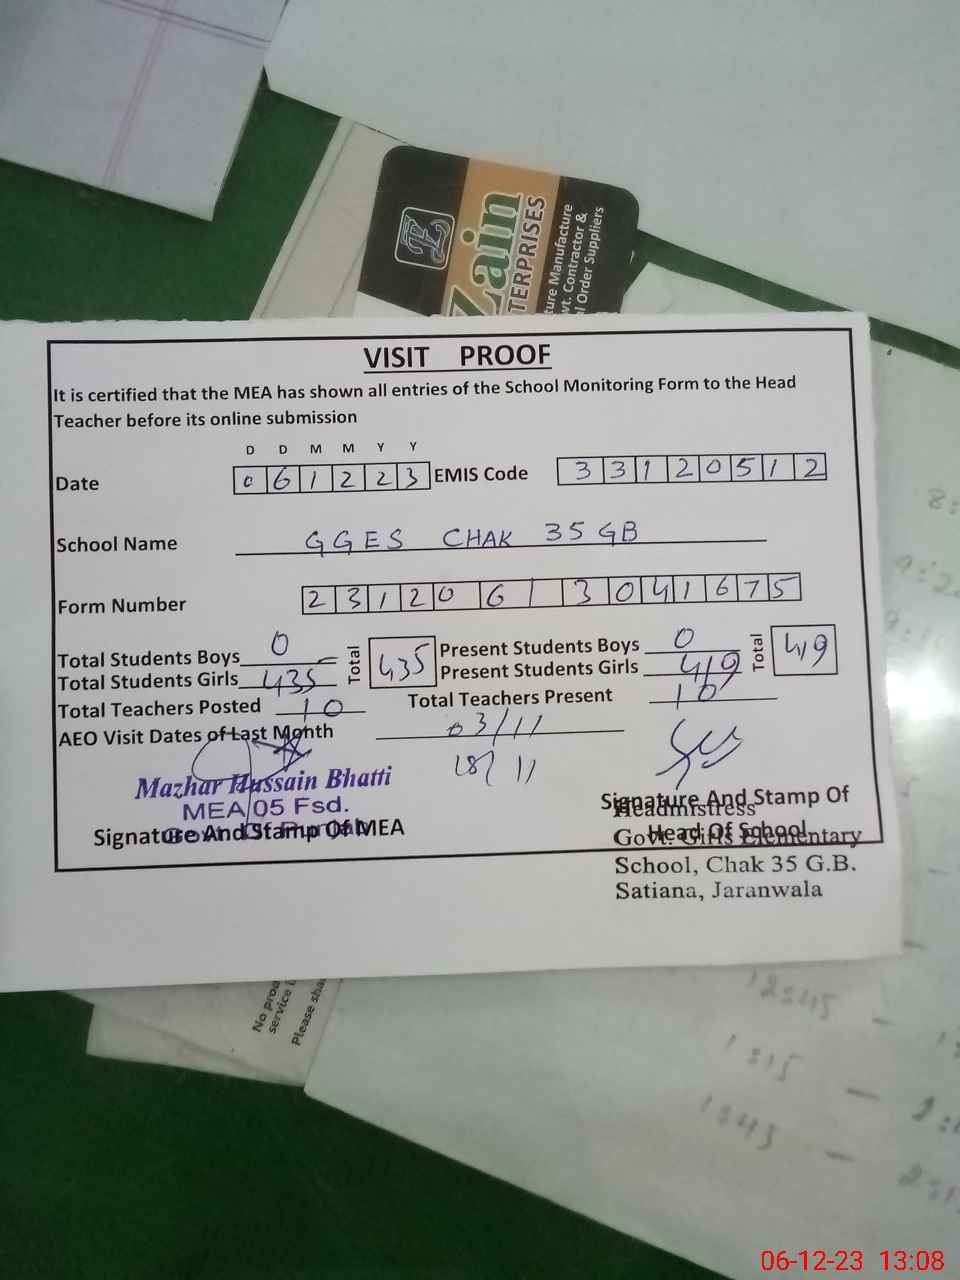 Zain
TERPRISES
ture Manufacture
vt. Contractor &
l Order Suppliers
VISIT PROOF
It is certified that the MEA has shown all entries of the School Monitoring Form to the Head
Teacher before its online submission
D D M M Y Y
Date 0 6 1 2 2 3 EMIS Code 3 3 1 2 0 5 1 2
School Name GGES CHAK 35 GB
Form Number 2 3 1 2 0 6 1 3 0 4 1 6 7 5
Total Students Boys 0 Total 435 Present Students Boys 0 Total 419
Total Students Girls 435 Present Students Girls 419
Total Teachers Posted 10 Total Teachers Present 10
AEO Visit Dates of Last Month 03/11
18/11
Mazhar Hussain Bhatti
MEA 05 Fsd.
Signature And Stamp Of MEA
Signature And Stamp Of
Head Of School
Headmistress
Govt. Girls Elementary
School, Chak 35 G.B.
Satiana, Jaranwala
No proo
service i
Please sha
12:45 —
1:15 —
1:45 —
06-12-23 13:08